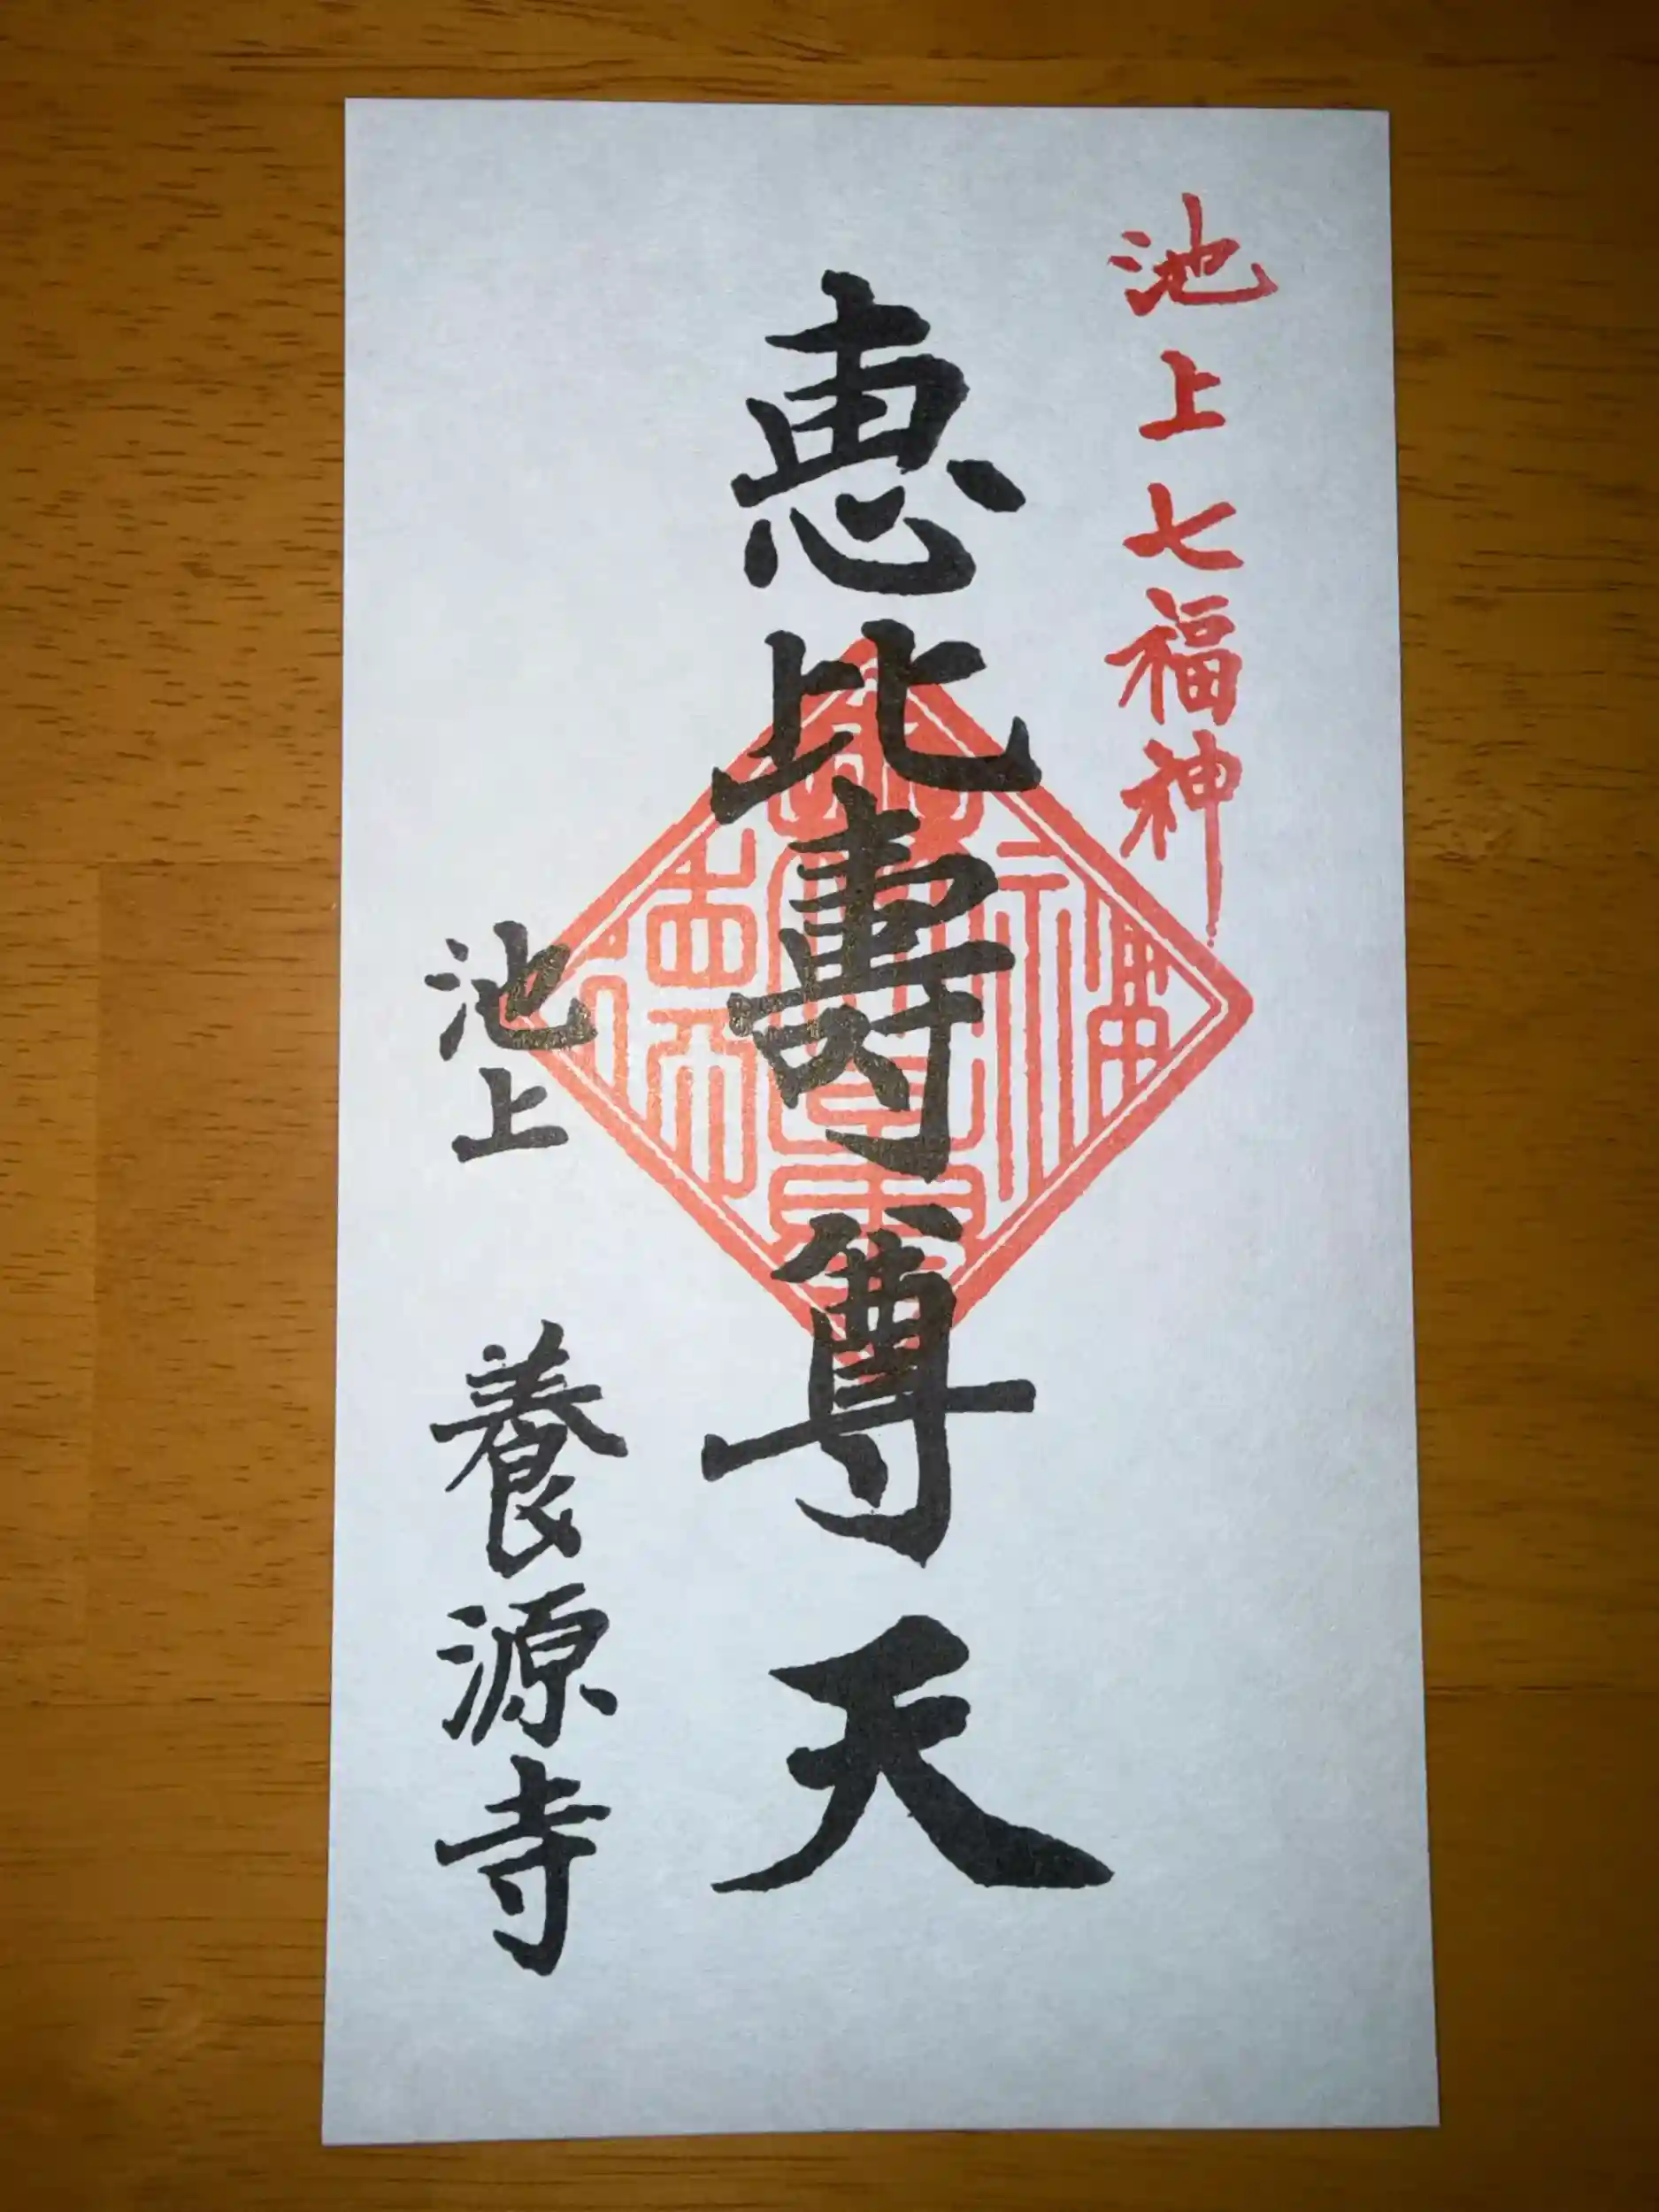 池上七福神
恵比壽尊天
池上 養源寺